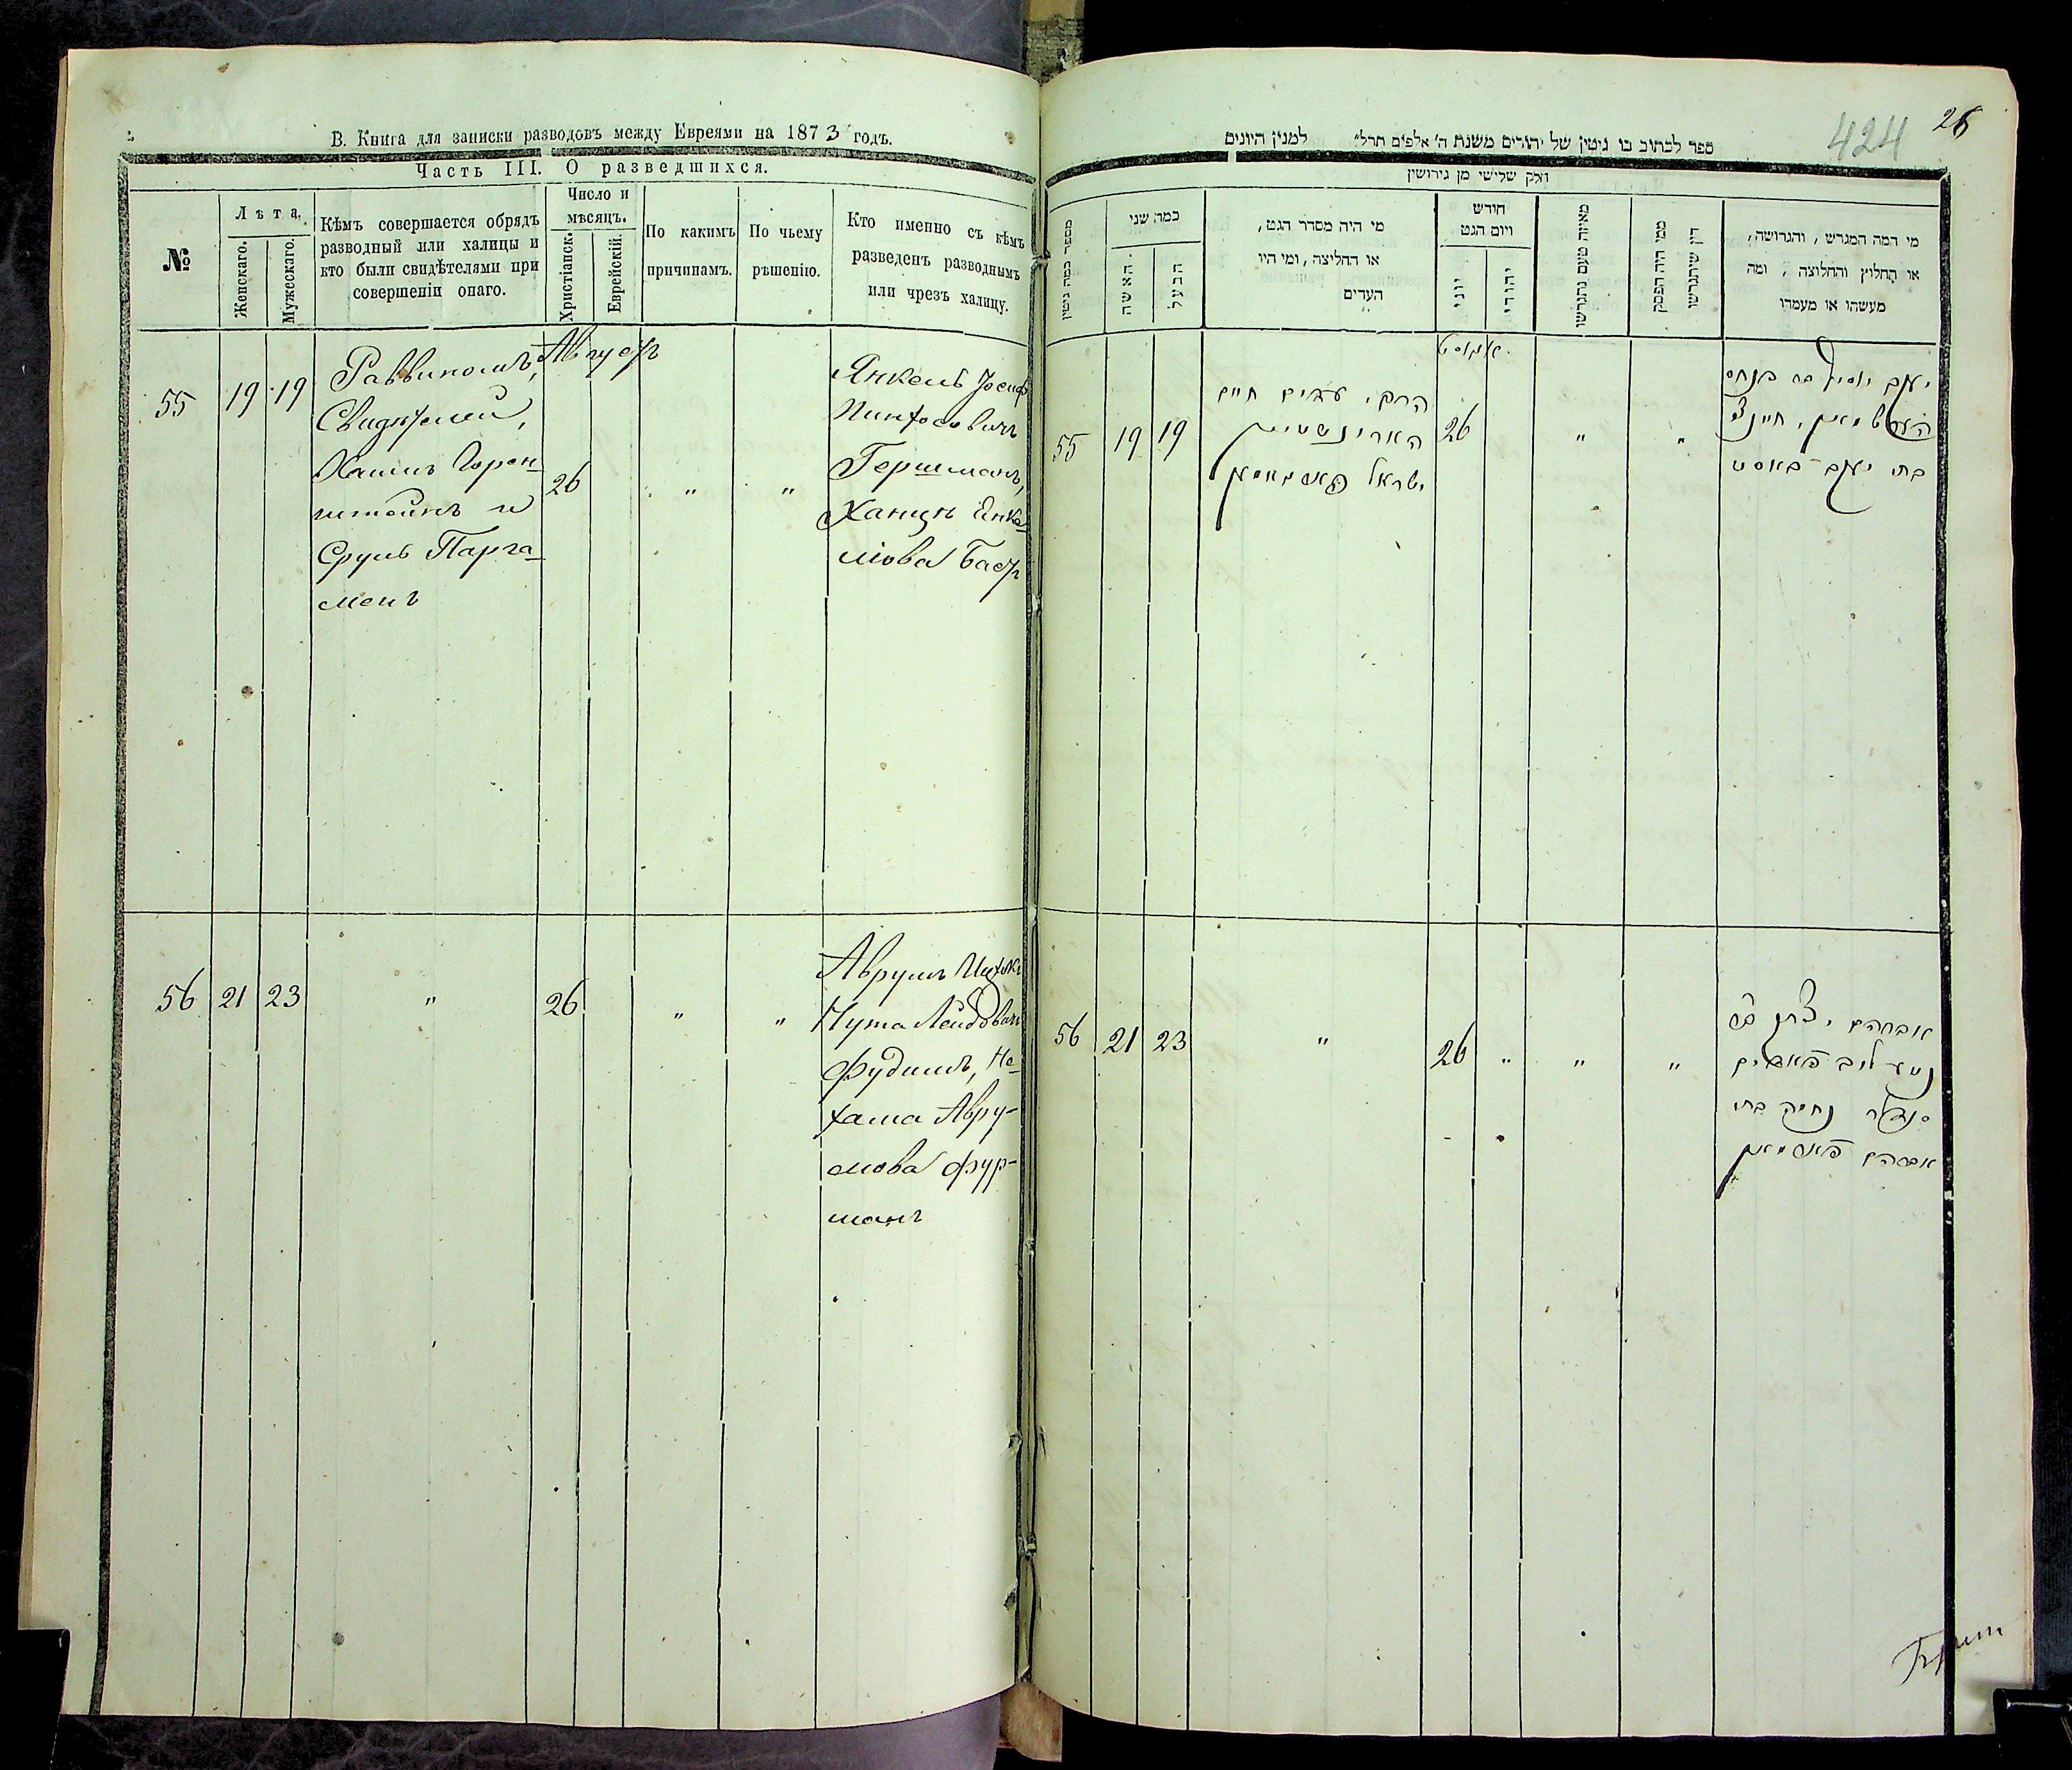 В. Книга для записки разводовъ между Евреями на 1873 годъ.
Часть III. О разведшихся.
№
Лѣта.
Женскаго.
Мужескаго.
Кѣмъ совершается обрядъ
разводный или халицы и
кто были свидѣтелями при
совершеніи онаго.
Число и
мѣсяцъ.
Христіанск.
Еврейскій.
По какимъ
причинамъ.
По чьему
рѣшенію.
Кто именно съ кѣмъ
разведенъ разводнымъ
или чрезъ халицу.
55
19
19
Раввиномъ,
Свидѣтели,
Хаимъ Горен-
штейнъ и
Сруль Парга-
менъ
Августъ
26
"
"
Янкель Іосиф
Пинхосовичъ
Гершманъ,
Ханцѣ Янке-
лiова Бастъ
56
21
23
"
26
"
"
Аврумъ Ицхокъ
Нута Лейбовичъ
Фудимъ, Не-
хама Авру-
мова Фур-
манъ
424
26
ספר לכתוב בו גיטין של יהודים משנת ה' אלפים תרל" למנין היונים
חלק שלישי מן גירושין
מספר כמה גיטין
כמה שני
האשה
הבעל
מי היה מסדר הגט,
או החליצה, ומי היו
העדים
חודש
ויום הגט
יוני
יהודי
מאיזה טעם נתגרשו
ממי היה הפסק
דין שיתגרשו
מי המה המגרש, והגרושה,
או החלוץ והחלוצה, ומה
מעשהו או מעמדו
55
19
19
הרב, עדים חיים
האריגשטיין
ישראל
אוגוסט
26
"
"
יעקב יוסף בן פנחס
הערשמאן, חיינצי
בת יעקב באסט
56
21
23
"
26
"
"
"
אברהם יצחק בן
נטע ליב פאדים
נחמה בת
אברהם פארמאן